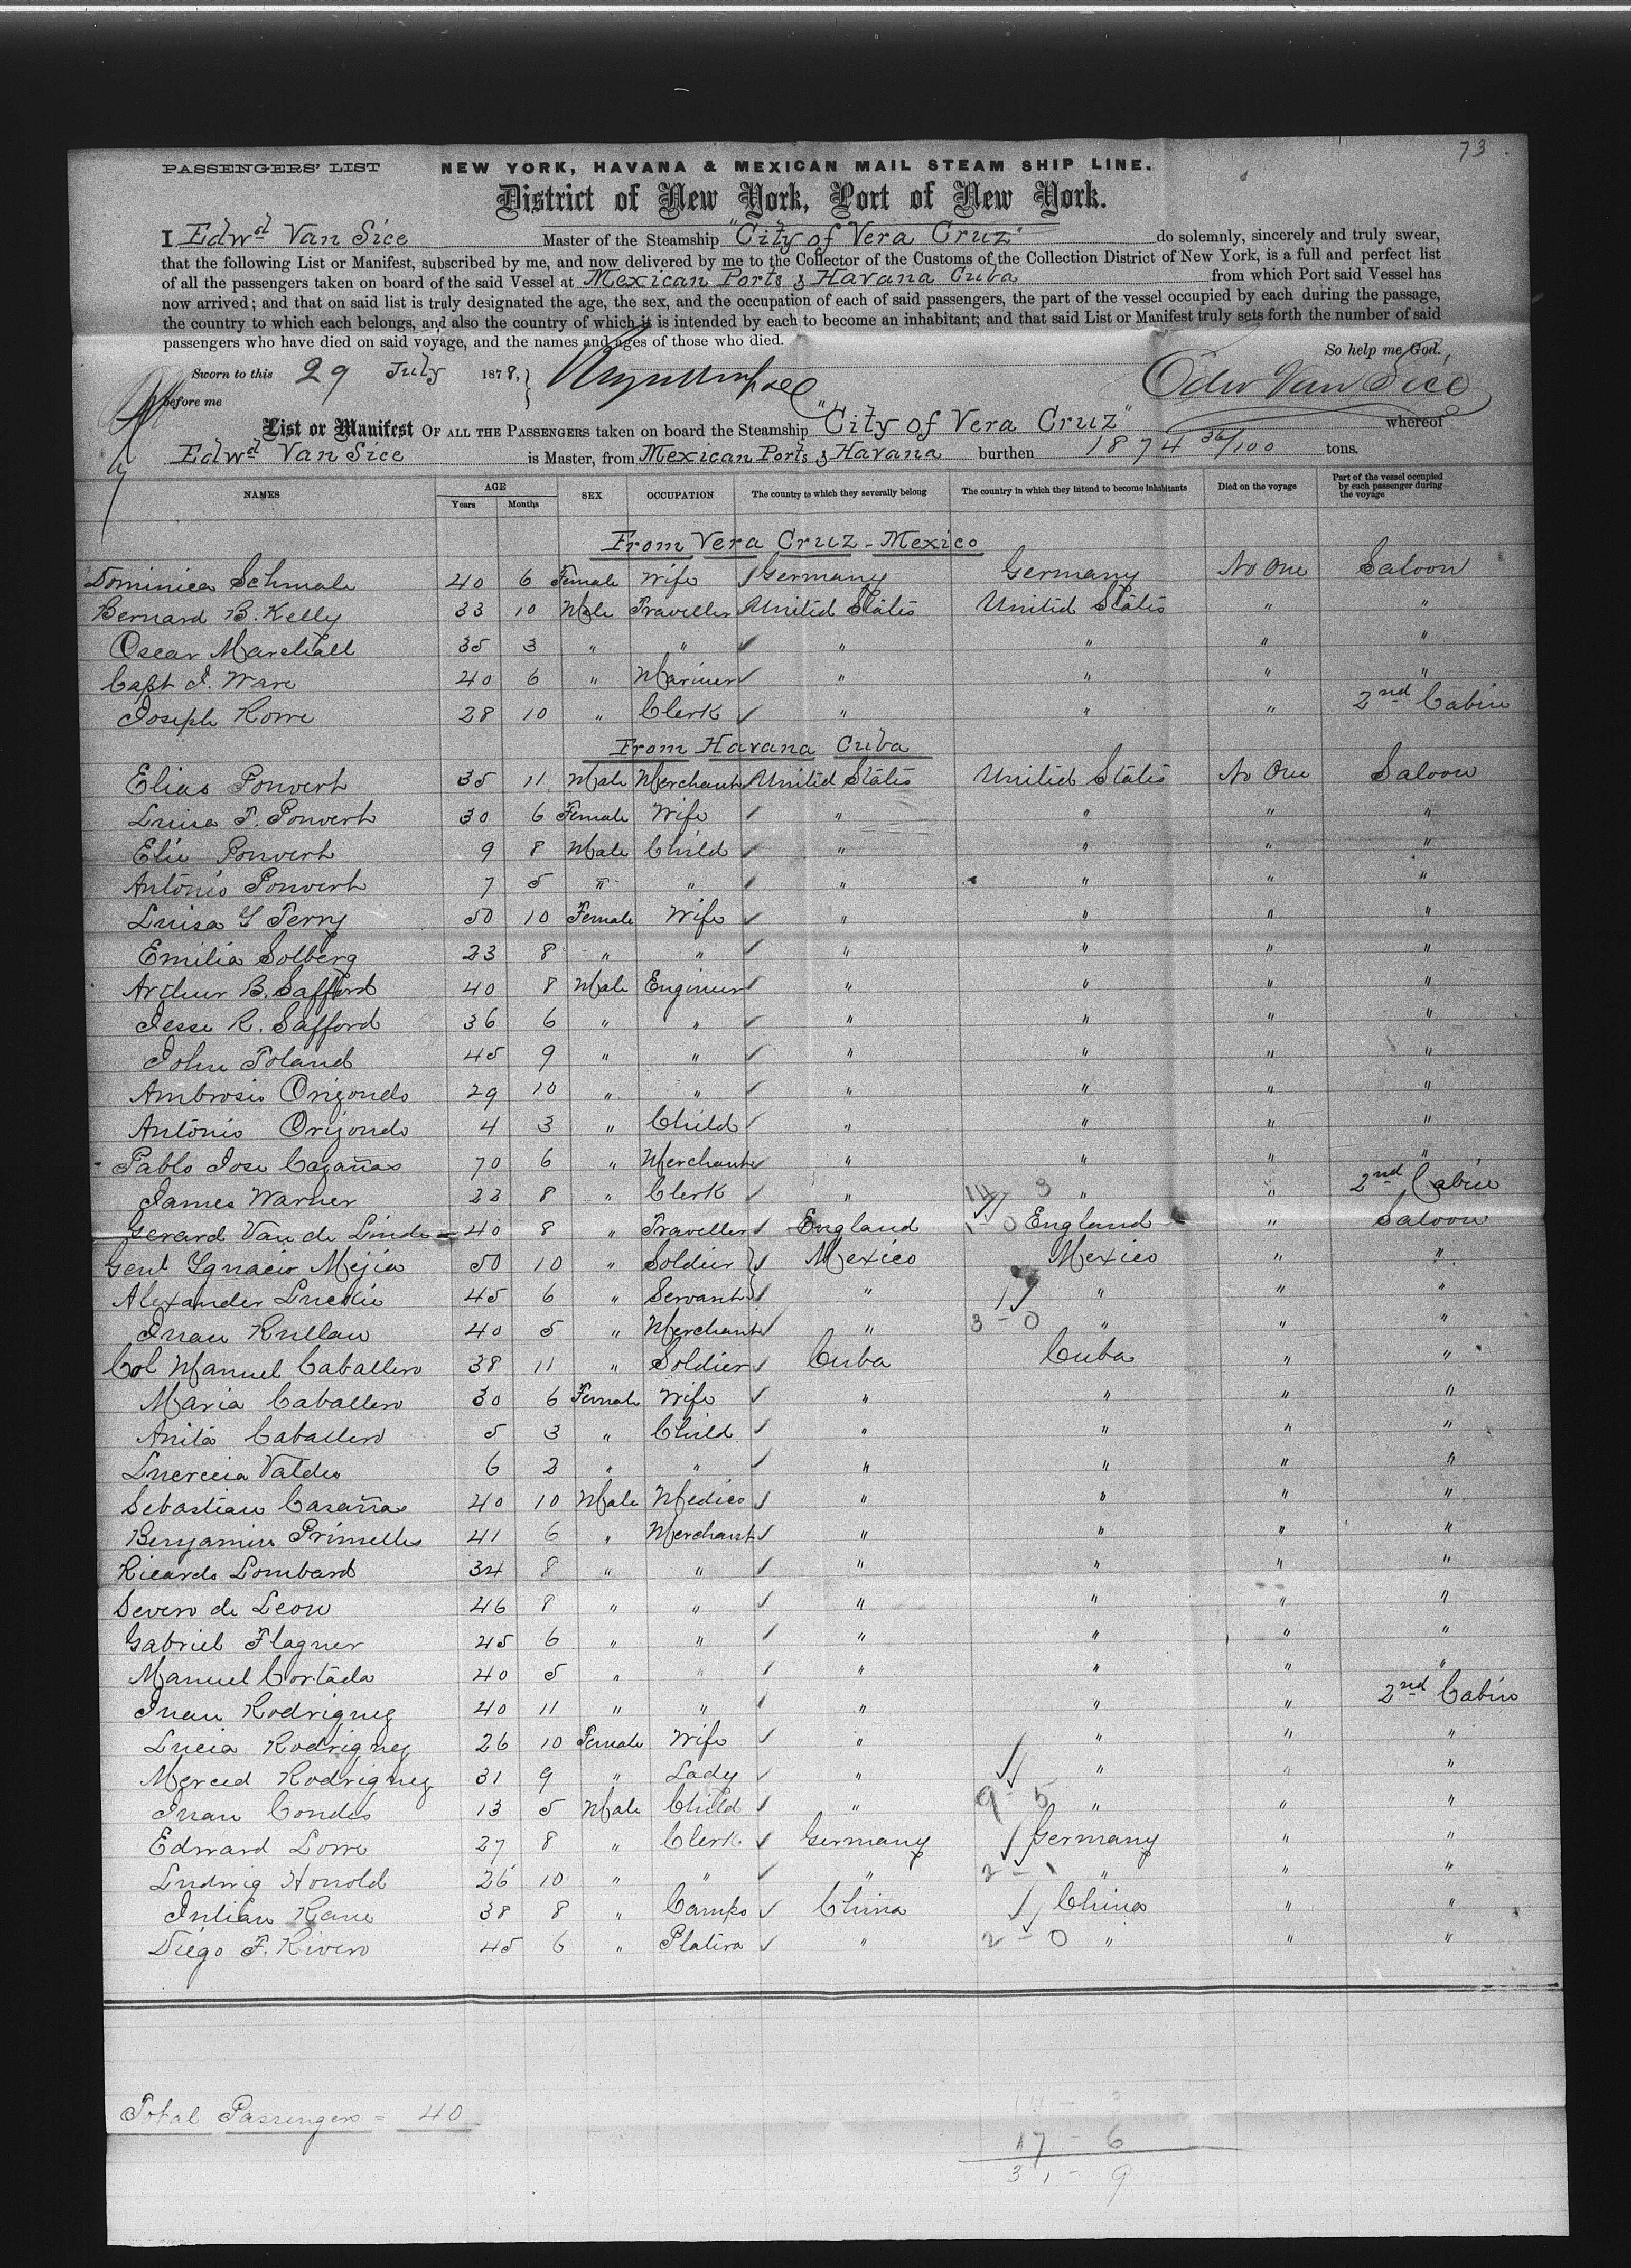 73
PASSENGERS' LIST NEW YORK, HAVANA & MEXICAN MAIL STEAM SHIP LINE.
District of New York, Port of New York.
I Edwd Van Sice Master of the Steamship "City of Vera Cruz" do solemnly, sincerely and truly swear,
that the following List or Manifest, subscribed by me, and now delivered by me to the Collector of the Customs of the Collection District of New York, is a full and perfect list
of all the passengers taken on board of the said Vessel at Mexican Ports & Havana Cuba from which Port said Vessel has
now arrived; and that on said list is truly designated the age, the sex, and the occupation of each of said passengers, the part of the vessel occupied by each during the passage,
the country to which each belongs, and also the country of which it is intended by each to become an inhabitant; and that said List or Manifest truly sets forth the number of said
passengers who have died on said voyage, and the names and ages of those who died.
So help me God.
Sworn to this 29 July 1878,
before me
Edw Van Sice
List or Manifest OF ALL THE PASSENGERS taken on board the Steamship "City of Vera Cruz" whereof
Edwd Van Sice is Master, from Mexican Ports & Havana burthen 1874 36/100 tons.
NAMES AGE Years Months SEX OCCUPATION The country to which they severally belong The country in which they intend to become inhabitants Died on the voyage Part of the vessel occupied by each passenger during the voyage
From Vera Cruz - Mexico
Dominica Schmale 40 6 Female Wife Germany Germany No One Saloon
Bernard B. Kelly 33 10 Male Traveller United States United States " "
Oscar Marshall 35 3 " " " " " "
Capt J. Ware 40 6 " Mariner " " " "
Joseph Rowe 28 10 " Clerk " " " 2nd Cabin
From Havana Cuba
Elias Ponvert 35 11 Male Merchant United States United States No One Saloon
Luisa T. Ponvert 30 6 Female Wife " " " "
Elie Ponvert 9 8 Male Child " " " "
Antonio Ponvert 7 5 " " " " " "
Luisa G Terry 50 10 Female Wife " " " "
Emilia Solberg 23 8 " " " " " "
Arthur B. Safford 40 8 Male Engineer " " " "
Jesse R. Safford 36 6 " " " " " "
John Poland 45 9 " " " " " "
Ambrosio Orijondo 29 10 " " " " " "
Antonio Orijondo 4 3 " Child " " " "
Pablo Jose Cazañas 70 6 " Merchant " " " "
James Warner 23 8 " Clerk " 14 3 " " 2nd Cabin
Gerard Van de Linde 40 8 " Traveller England 1 - 0 England " Saloon
Genl Ygnacio Mejia 50 10 " Soldier Mexico Mexico " "
Alexander Luckie 45 6 " Servant " " " "
Juan Kullau 40 5 " Merchant " 3 - 0 " " "
Col Manuel Caballero 38 11 " Soldier Cuba Cuba " "
Maria Caballero 30 6 Female Wife " " " "
Anita Caballero 5 3 " Child " " " "
Lucrecia Valdes 6 2 " " " " " "
Sebastian Casañas 40 10 Male Medico " " " "
Benjamin Primelles 41 6 " Merchant " " " "
Ricardo Lombard 34 8 " " " " " "
Severo de Leon 46 8 " " " " " "
Gabriel Flaguer 45 6 " " " " " "
Manuel Cortada 40 5 " " " " " "
Juan Rodriguez 40 11 " " " " " 2nd Cabin
Lucia Rodriguez 26 10 Female Wife " " " "
Merced Rodriguez 31 9 " Lady " " " "
Juan Condes 13 5 Male Child " 9 - 5 " " "
Edward Lowe 27 8 " Clerk Germany Germany " "
Ludwig Honold 26 10 " " " 2 - 1 " " "
Julian Kane 38 8 " Campo China China " "
Diego F. Rivero 45 6 " Platira " 2 - 0 " " "
Total Passengers = 40
17 - 6
31 - 9